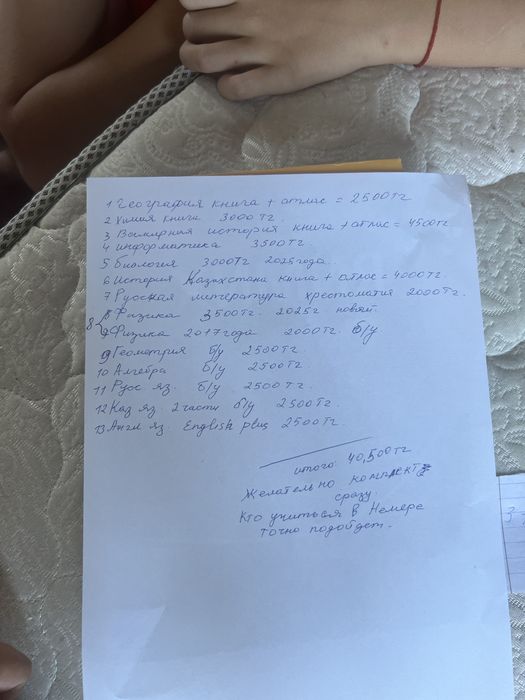 1 География книга + атлас = 2500тг
2 Химия книга 3000тг.
3 Всемирная история книга + атлас = 4500тг
4 информатика 3500тг
5 биология 3000тг 2025года.
6 История Казахстана книга + атлас = 4000тг.
7 Русская литература хрестоматия 2000тг.
8 Физика 3500тг. 2025г новый.
Физика 2017года 2000тг. б/у
9 Геометрия б/у 2500тг
10 Алгебра б/у 2500тг.
11 Русс яз. б/у 2500тг.
12 Каз яз 2 части б/у 2500тг.
13 Англ яз. English plus 2500тг.
итого: 40,500тг
Желательно комплект
сразу.
Кто учиться в Немере
точно подойдет.
3